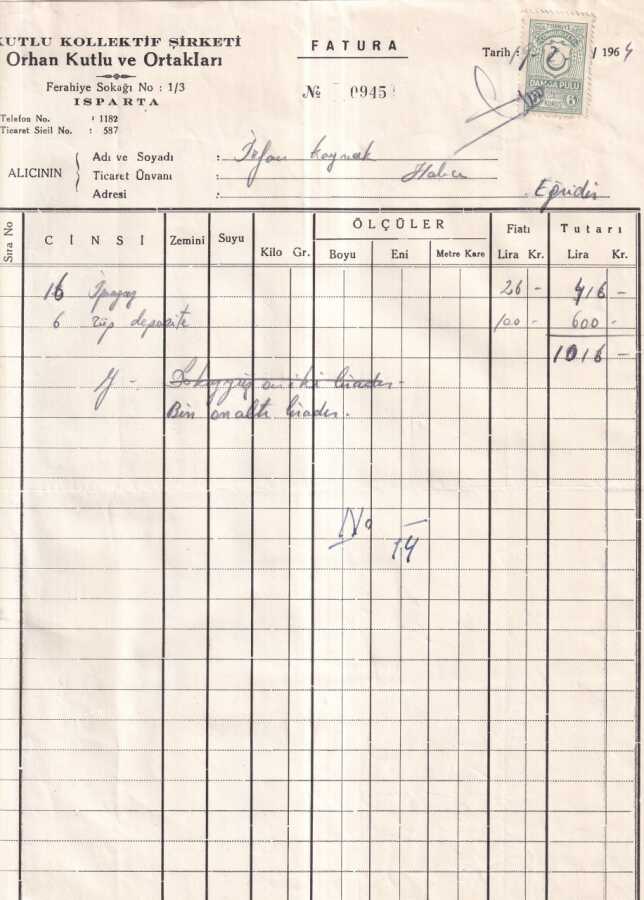 KUTLU KOLLEKTİF ŞİRKETİ
Orhan Kutlu ve Ortakları
Ferahiye Sokağı No : 1/3
ISPARTA
Telefon No. : 1182
Ticaret Sicil No. : 587
FATURA
№ 0945
Tarih : / 2 / 1964
TÜRKİYE
CUMHURİYETİ
DAMGA PULU
ALICININ
Adı ve Soyadı : Kaynak
Ticaret Ünvanı : Halıcı
Adresi : Eğridir
Sıra No CİNSİ Zemini Suyu Kilo Gr. ÖLÇÜLER Fiatı Tutarı
Boyu Eni Metre Kare Lira Kr. Lira Kr.
16 İpragaz 26 - 416 -
6 tüp depozite 100 - 600 -
1016 -
Y - on iki liradır -
Bin on altı liradır.
No
14